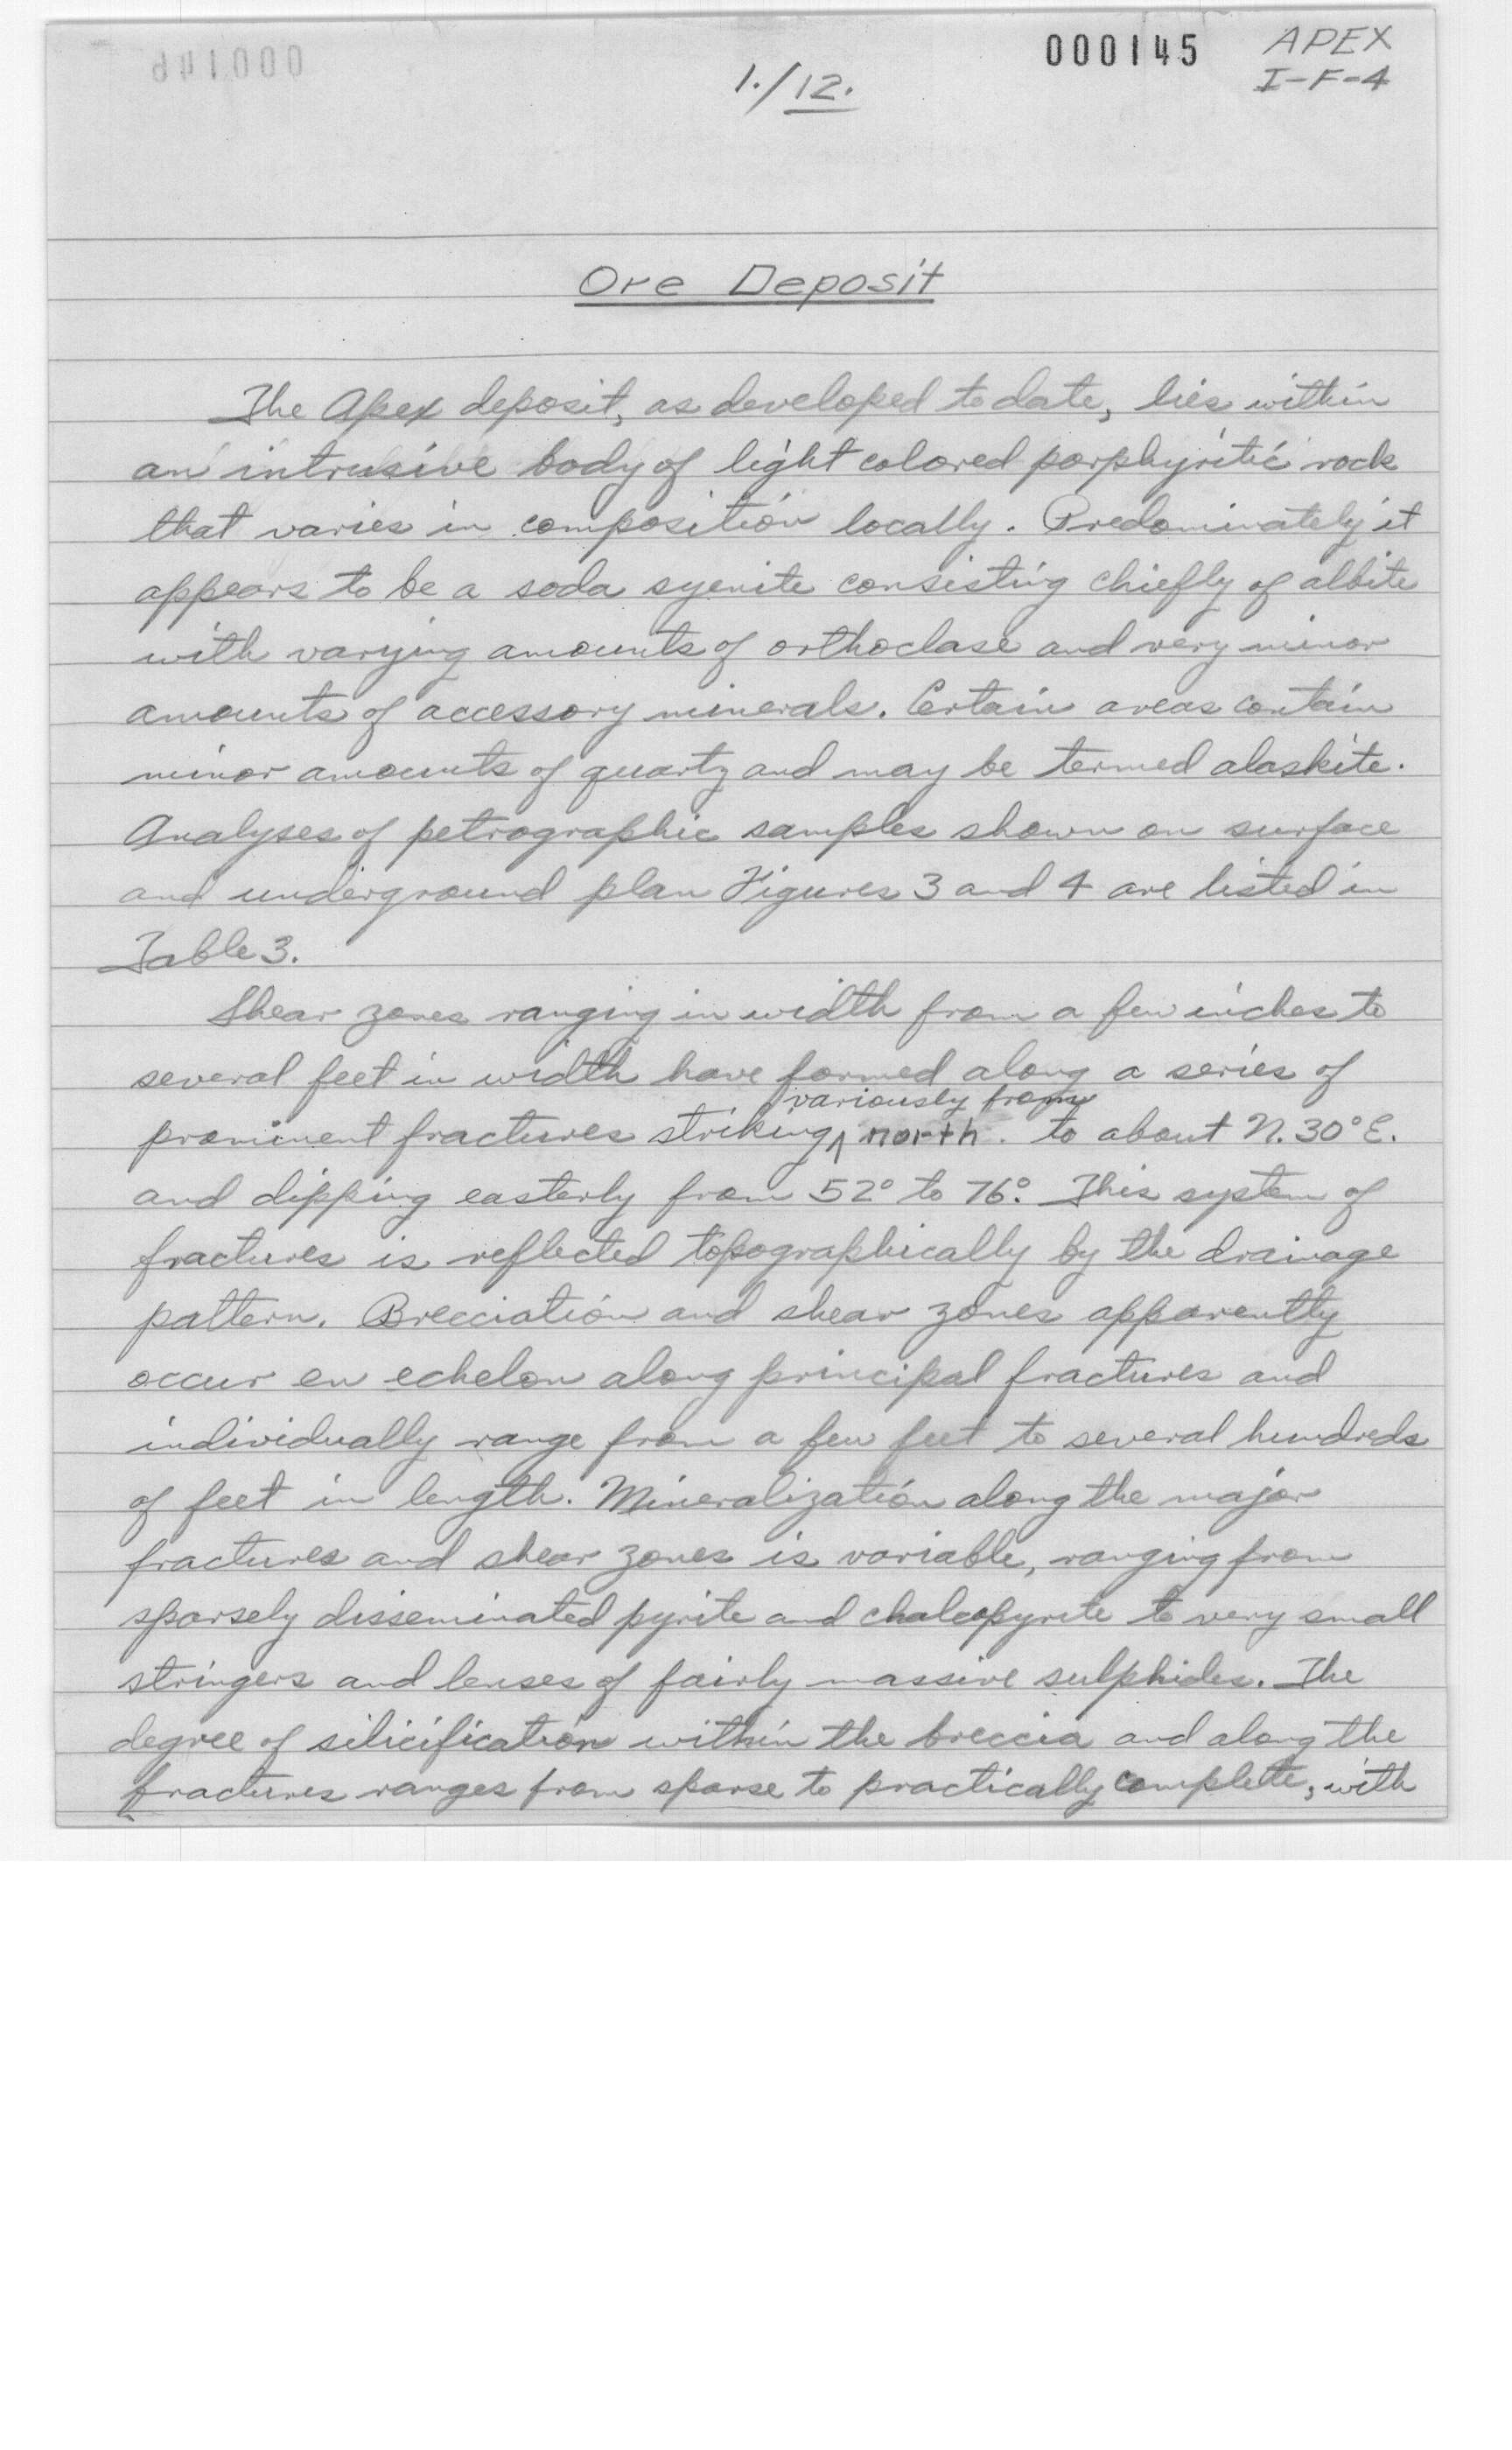 000145 APEX
1./12. I-F-4
Ore Deposit
The Apex deposit, as developed to date, lies within
an intrusive body of light colored porphyritic rock
that varies in composition locally. Predominately it
appears to be a soda syenite consisting chiefly of albite
with varying amounts of orthoclase and very minor
amounts of accessory minerals. Certain areas contain
minor amounts of quartz and may be termed alaskite.
Analyses of petrographic samples shown on surface
and underground plan Figures 3 and 4 are listed in
Table 3.
Shear zones ranging in width from a few inches to
several feet in width have formed along a series of
variously from
prominent fractures striking ^ north. to about N. 30° E.
and dipping easterly from 52° to 76°. This system of
fractures is reflected topographically by the drainage
pattern. Brecciation and shear zones apparently
occur en echelon along principal fractures and
individually range from a few feet to several hundreds
of feet in length. Mineralization along the major
fractures and shear zones is variable, ranging from
sparsely disseminated pyrite and chalcopyrite to very small
stringers and lenses of fairly massive sulphides. The
degree of silicification within the breccia and along the
fractures ranges from sparse to practically complete, with